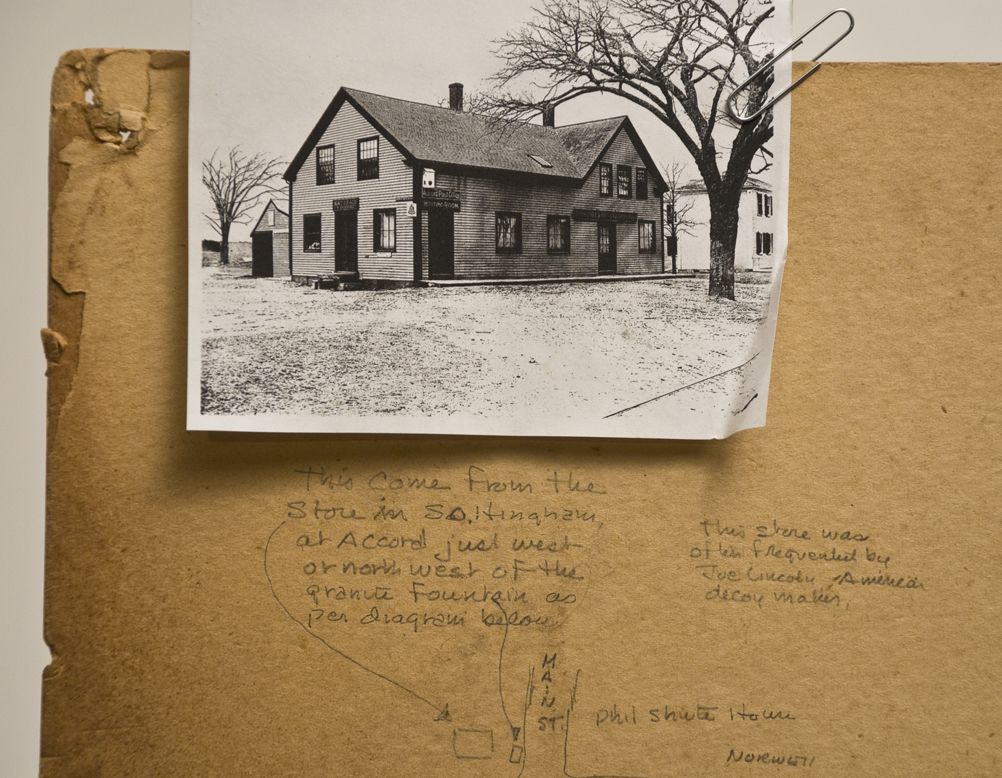 This come from the
Store in So. Hingham,
at Accord just west
or northwest of the
granite Fountain as
per diagram below
This store was
often frequented by
Joe Lincoln, American
decoy maker,
MAIN
ST.
Phil Shute House
NORWELL